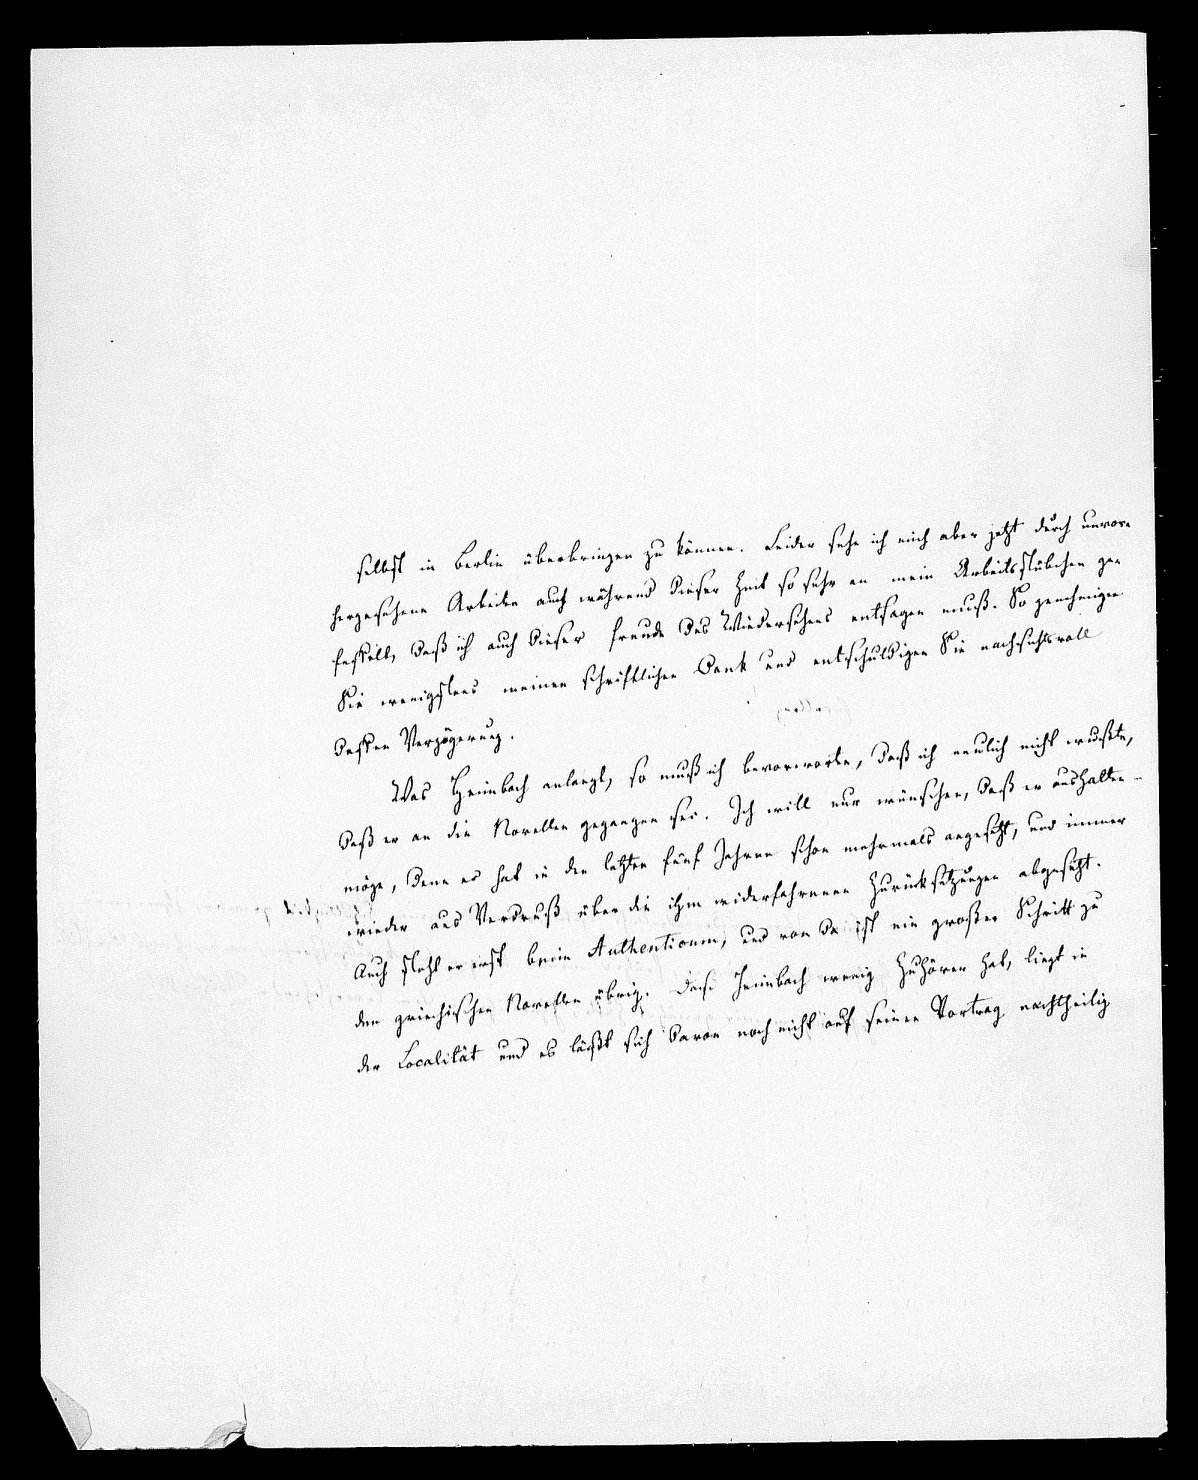 selbst in Berlin überbringen zu können. Leider sehe ich mich aber jetzt durch unvor-
hergesehene Arbeiten auch während dieser Zeit so sehr an mein Arbeitsstübchen ge-
fesselt, daß ich auch dieser Freude des Wiedersehens entsagen muß. So genehmigen
Sie wenigstens meinen schriftlichen Dank und entschuldigen Sie nachsichtsvoll
dessen Verzögerung.
Was Heimbach anlangt, so muß ich bevorworten, daß ich neulich nicht wußte,
daß er an die Novellen gegangen sei. Ich will nur wünschen, daß er aushalten
möge, denn er hat in den letzten fünf Jahren schon mehrmals angesetzt, und immer
wieder aus Verdruß über die ihm widerfahrenen Zurücksetzungen abgesetzt.
Auch steht er erst beim Authenticum, und von da ist ein großer Schritt zu
den griechischen Novellen übrig. Daß Heimbach wenig Zuhörer hat, liegt in
der Localität und es läßt sich davon noch nicht auf seinen Vortrag nachtheilig